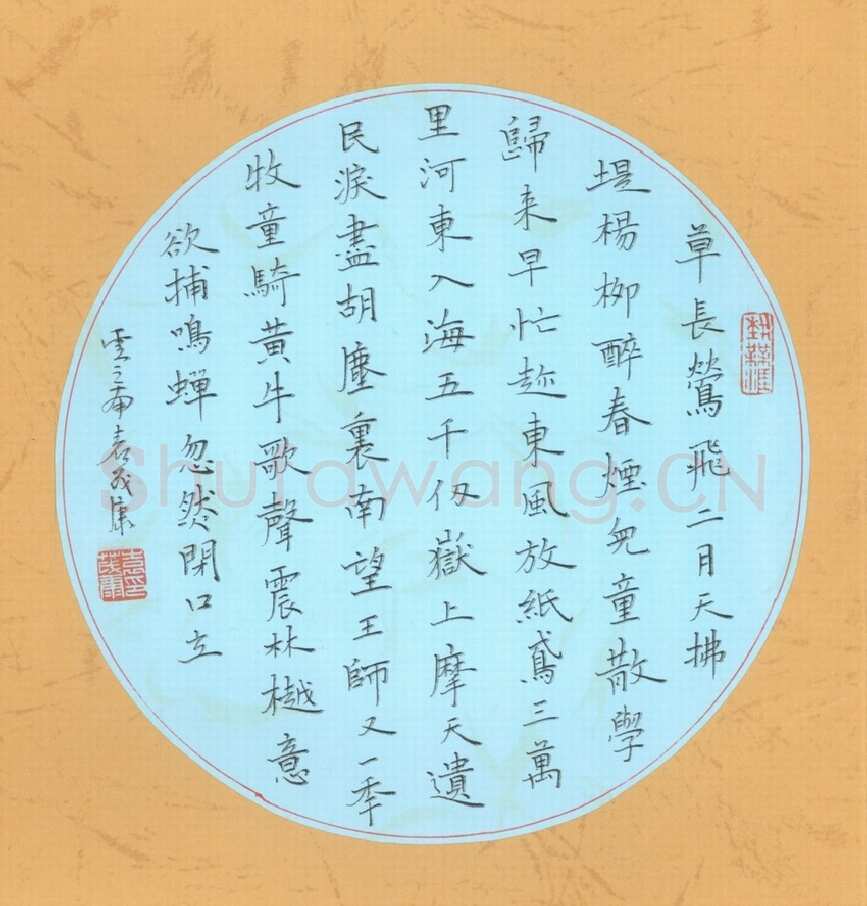 草長鶯飛二月天拂
堤楊柳醉春煙兒童散學
歸来早忙趂東風放紙鳶三萬
里河東入海五千仞嶽上摩天遺
民淚盡胡塵裏南望王師又一秊
牧童騎黄牛歌聲震林樾意
欲捕鳴蟬忽然閉口立
袁茂康
袁茂康印
Shufawang.CN